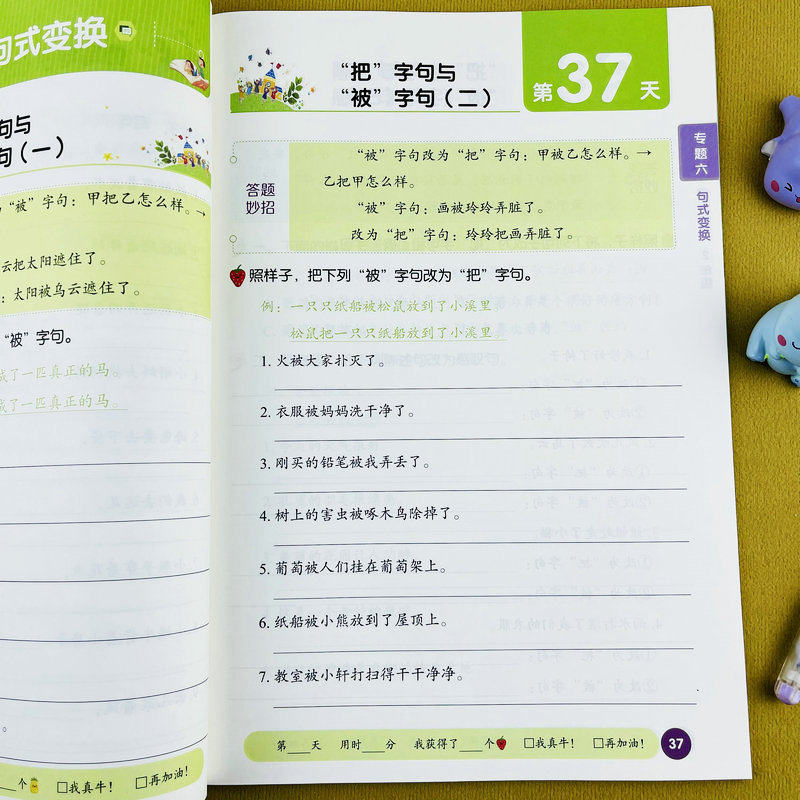 句式变换
句与
句（一）
“被”字句：甲把乙怎么样。→
云把太阳遮住了。
：太阳被乌云遮住了。
“被”字句。
成了一匹真正的马。
成了一匹真正的马。
。
个
□我真牛！
□再加油！
“把”字句与
“被”字句（二）
第37天
专题六
句式变换
答题
妙招
“被”字句改为“把”字句：甲被乙怎么样。→
乙把甲怎么样。
“被”字句：画被玲玲弄脏了。
改为“把”字句：玲玲把画弄脏了。
照样子，把下列“被”字句改为“把”字句。
例：一只只纸船被松鼠放到了小溪里。
松鼠把一只只纸船放到了小溪里。
1. 火被大家扑灭了。
2. 衣服被妈妈洗干净了。
3. 刚买的铅笔被我弄丢了。
4. 树上的害虫被啄木鸟除掉了。
5. 葡萄被人们挂在葡萄架上。
6. 纸船被小熊放到了屋顶上。
7. 教室被小轩打扫得干干净净。
第____天 用时____分 我获得了____个 □我真牛！ □再加油！
37